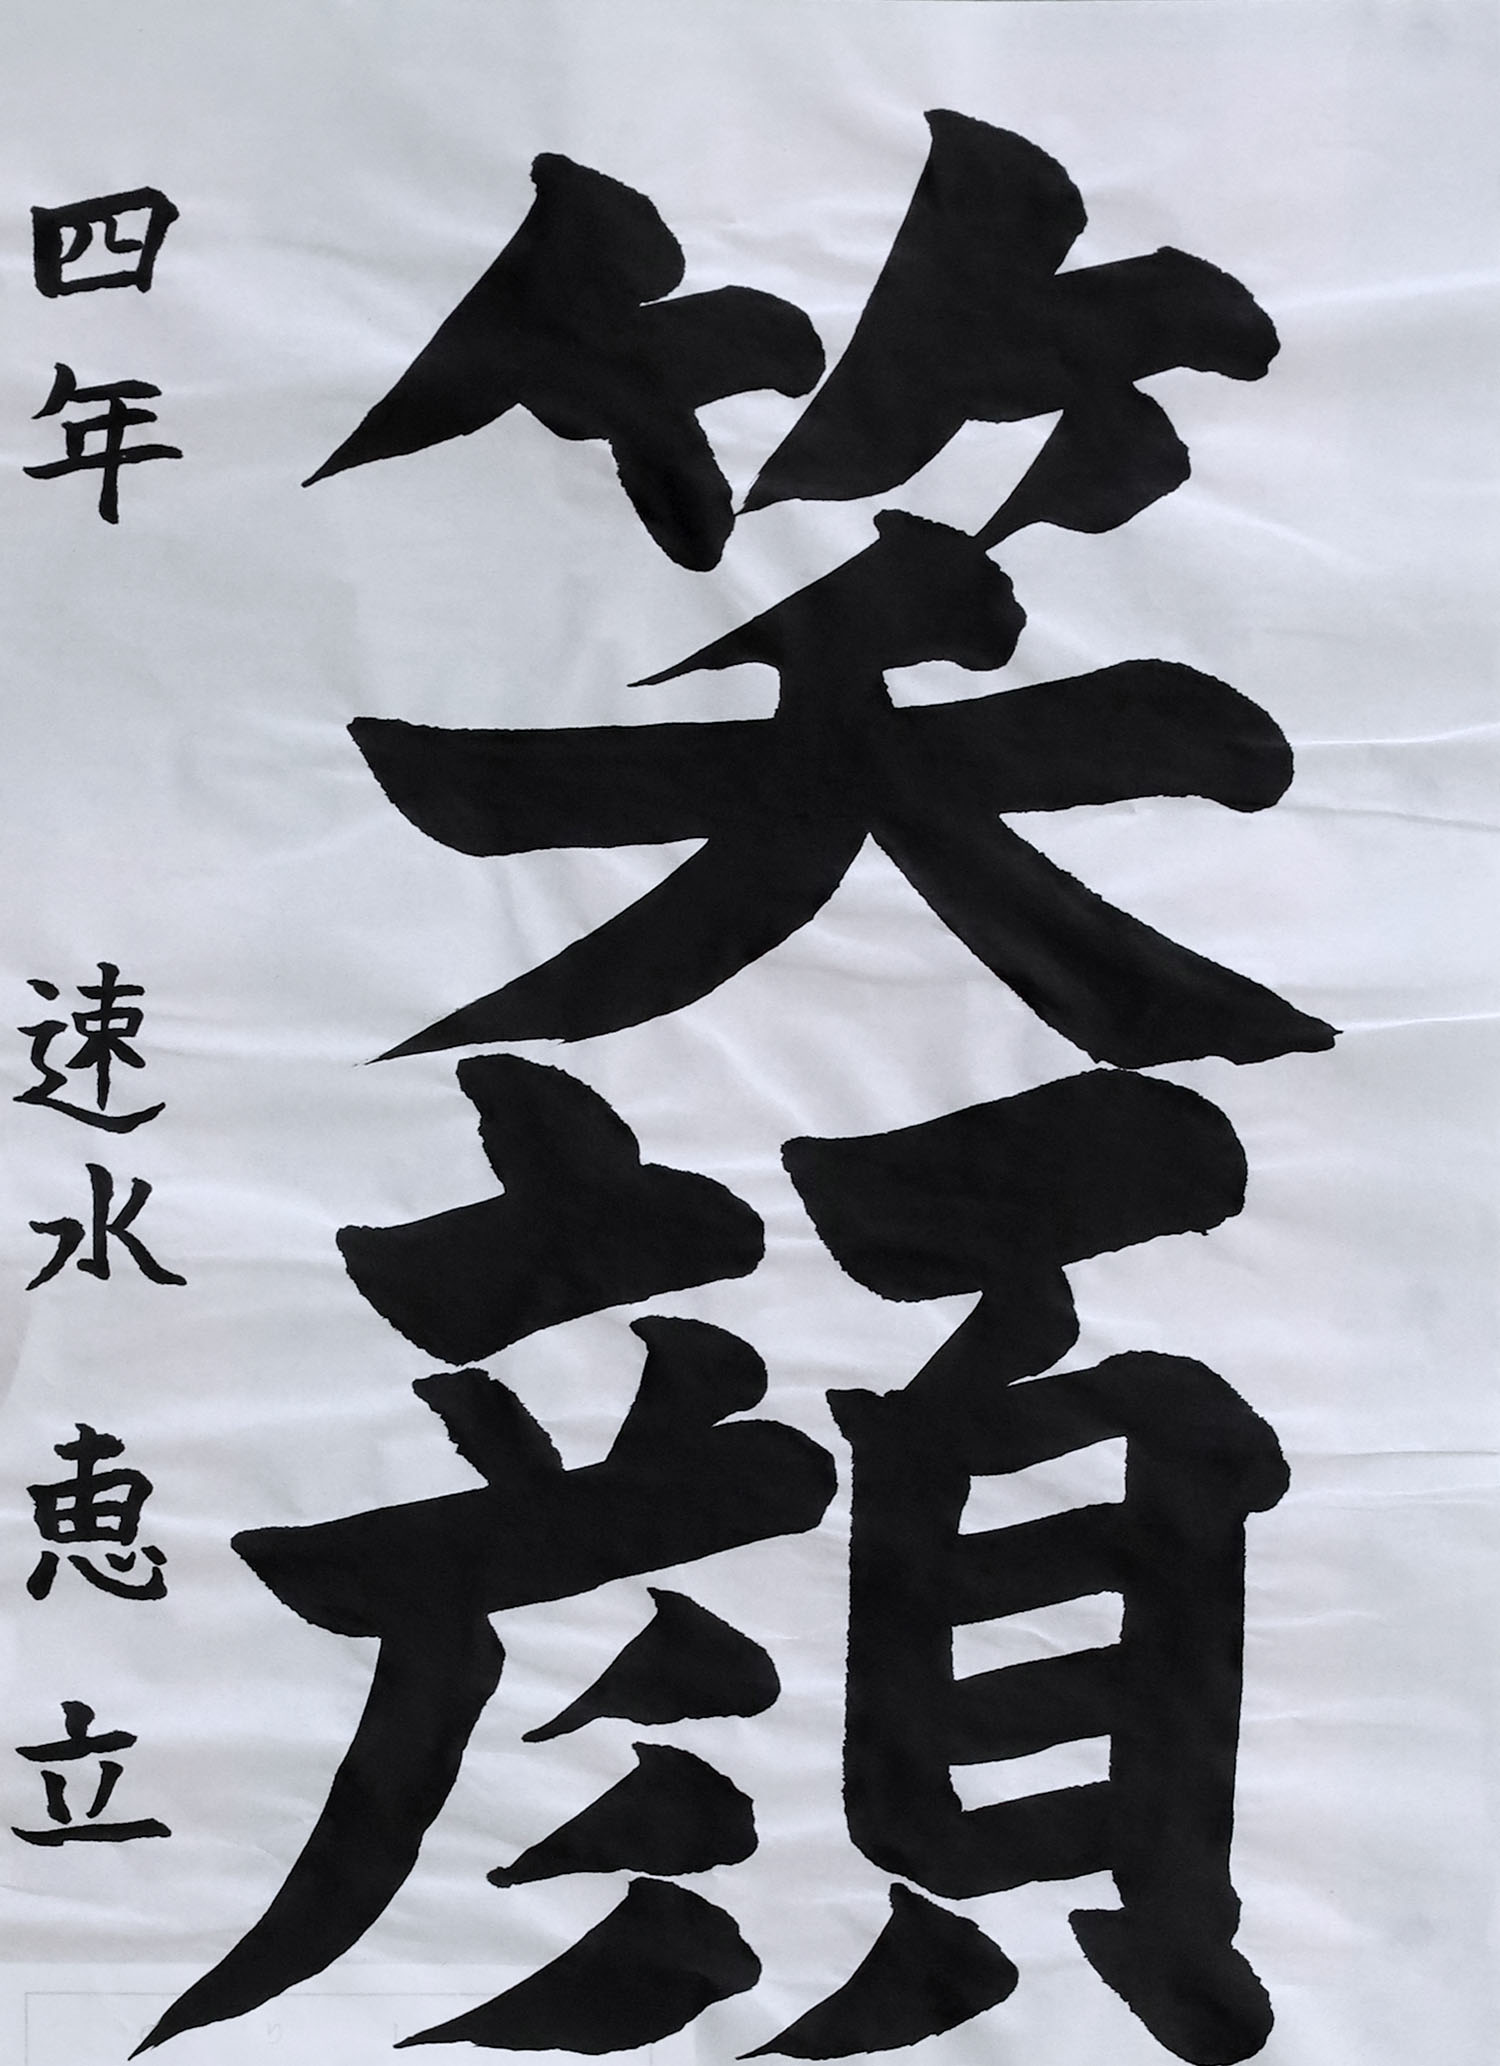 笑顔
四年 速水恵立